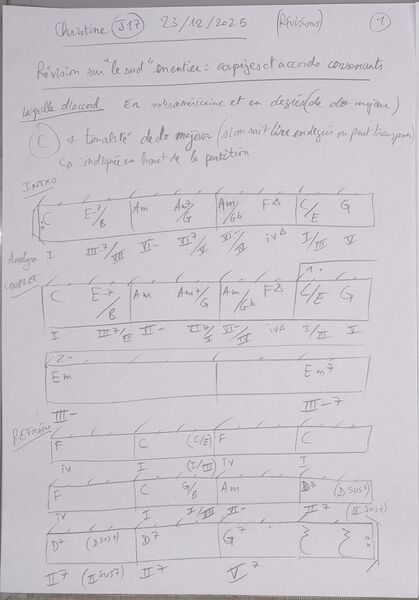 Christine J17 23/12/2025 (Révisions) 1
Révision sur "le sud" en entier = arpèges et accords consonants
La grille d'accord En notes américaine et en degrés (de do majeur)
C → tonalité de do majeur (si on sait lire en degrés on peut transposer)
↳ indiquée en haut de la partition
INTRO
C E-7/B Am Am7/G Am/Gb FΔ C/E G
Analyse I III-7/VII VI- VI7/V VI-/IV ivΔ I/III V
COUPLET 1.
C E-7/B Am Am7/G Am/Gb FΔ C/E G
I III7/VII VI- VI7/V VI-/IV ivΔ I/III V
2-
Em Em7
III- III-7
REFRAIN
F C (C/E) F C
iv I (I/III) iv I
F C G/B Am D7 (DSUS7)
iv I I/III VI- II7 (IISUS7)
D7 (DSUS7) D7 G7
II7 (IISUS7) II7 V7